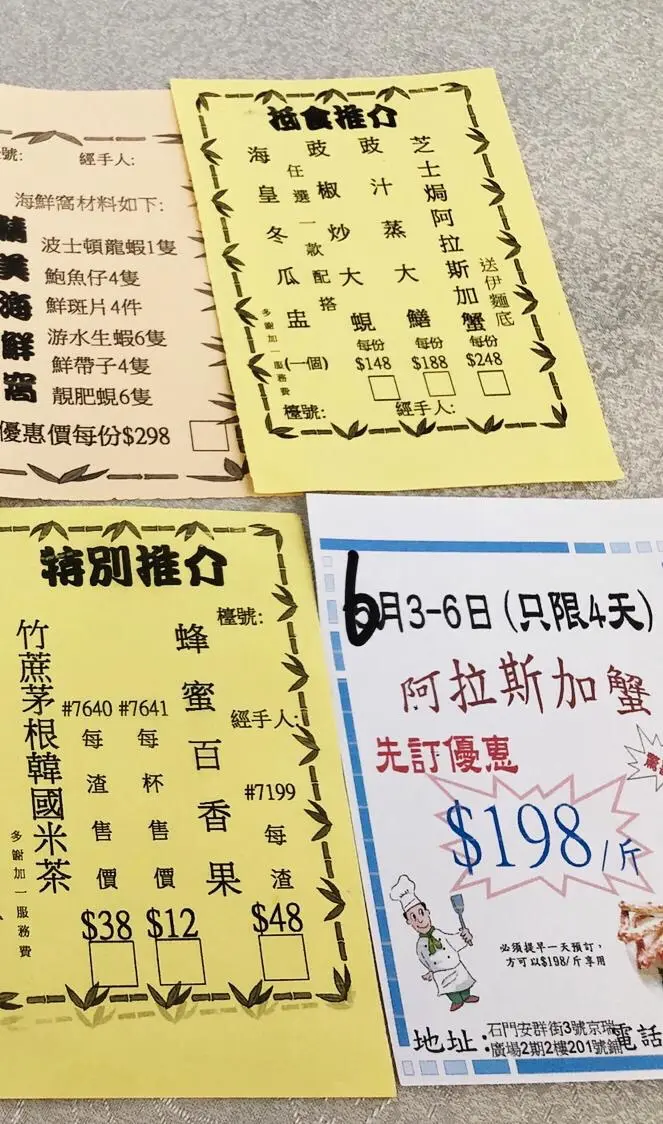 號:
經手人:
海鮮窩材料如下:
精美海鮮窩
波士頓龍蝦1隻
鮑魚仔4隻
鮮斑片4件
游水生蝦6隻
鮮帶子4隻
靚肥蜆6隻
優惠價每份$298
抵食推介
芝士焗阿拉斯加蟹
送伊麵底
每份
$248
豉汁蒸大鱔
每份
$188
豉椒炒大蜆
每份
$148
任選一款配搭
海皇冬瓜盅
(一個)
多謝加一服務費
檯號:
經手人:
特別推介
檯號:
經手人:
蜂蜜百香果
#7199
每渣
$48
#7641
每杯售價
$12
#7640
每渣售價
$38
竹蔗茅根韓國米茶
多謝加一服務費
6月3-6日(只限4天)
阿拉斯加蟹
先訂優惠
$198/斤
必須提早一天預訂，
方可以$198/斤享用
地址:石門安群街3號京瑞
廣場2期2樓201號鋪
電話